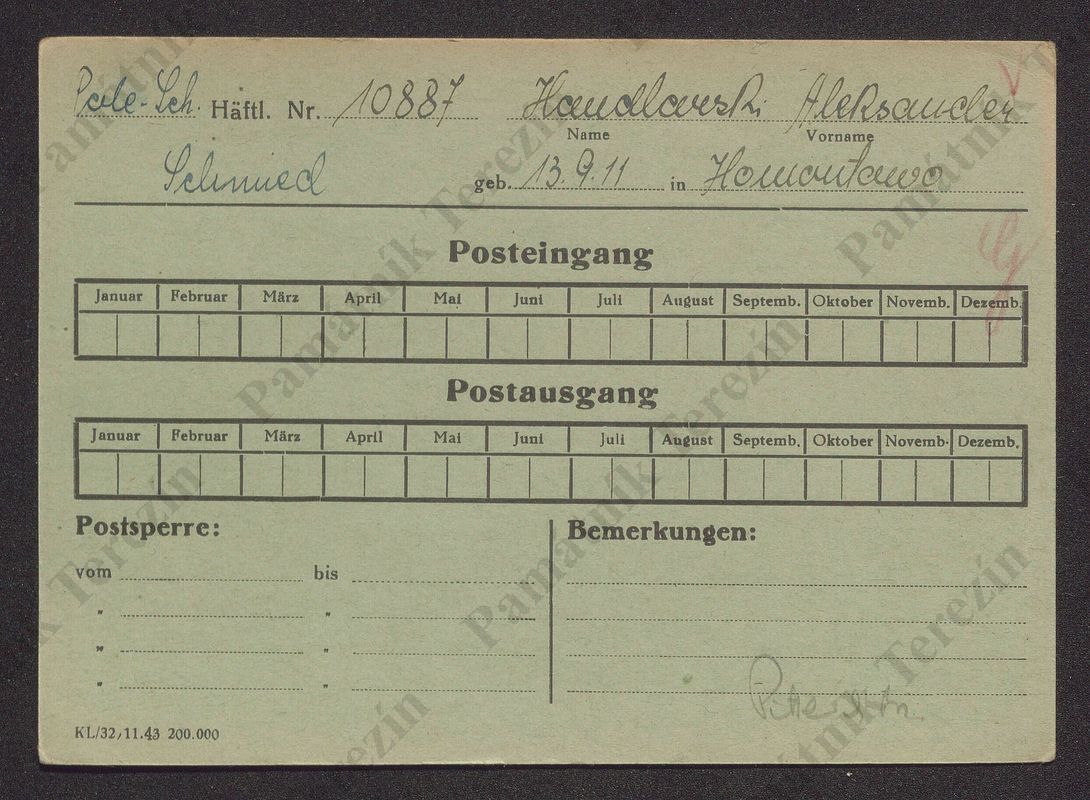 Pole-Sch. Häftl. Nr. 10887 Handlarski Aleksander
Name Vorname
Schmied geb. 13.9.11 in Homontowo
Posteingang
Januar Februar März April Mai Juni Juli August Septemb. Oktober Novemb. Dezemb.
Postausgang
Januar Februar März April Mai Juni Juli August Septemb. Oktober Novemb. Dezemb.
Postsperre: Bemerkungen:
vom bis
" "
" "
" "
KL/32/11.43 200.000
Památník Terezín